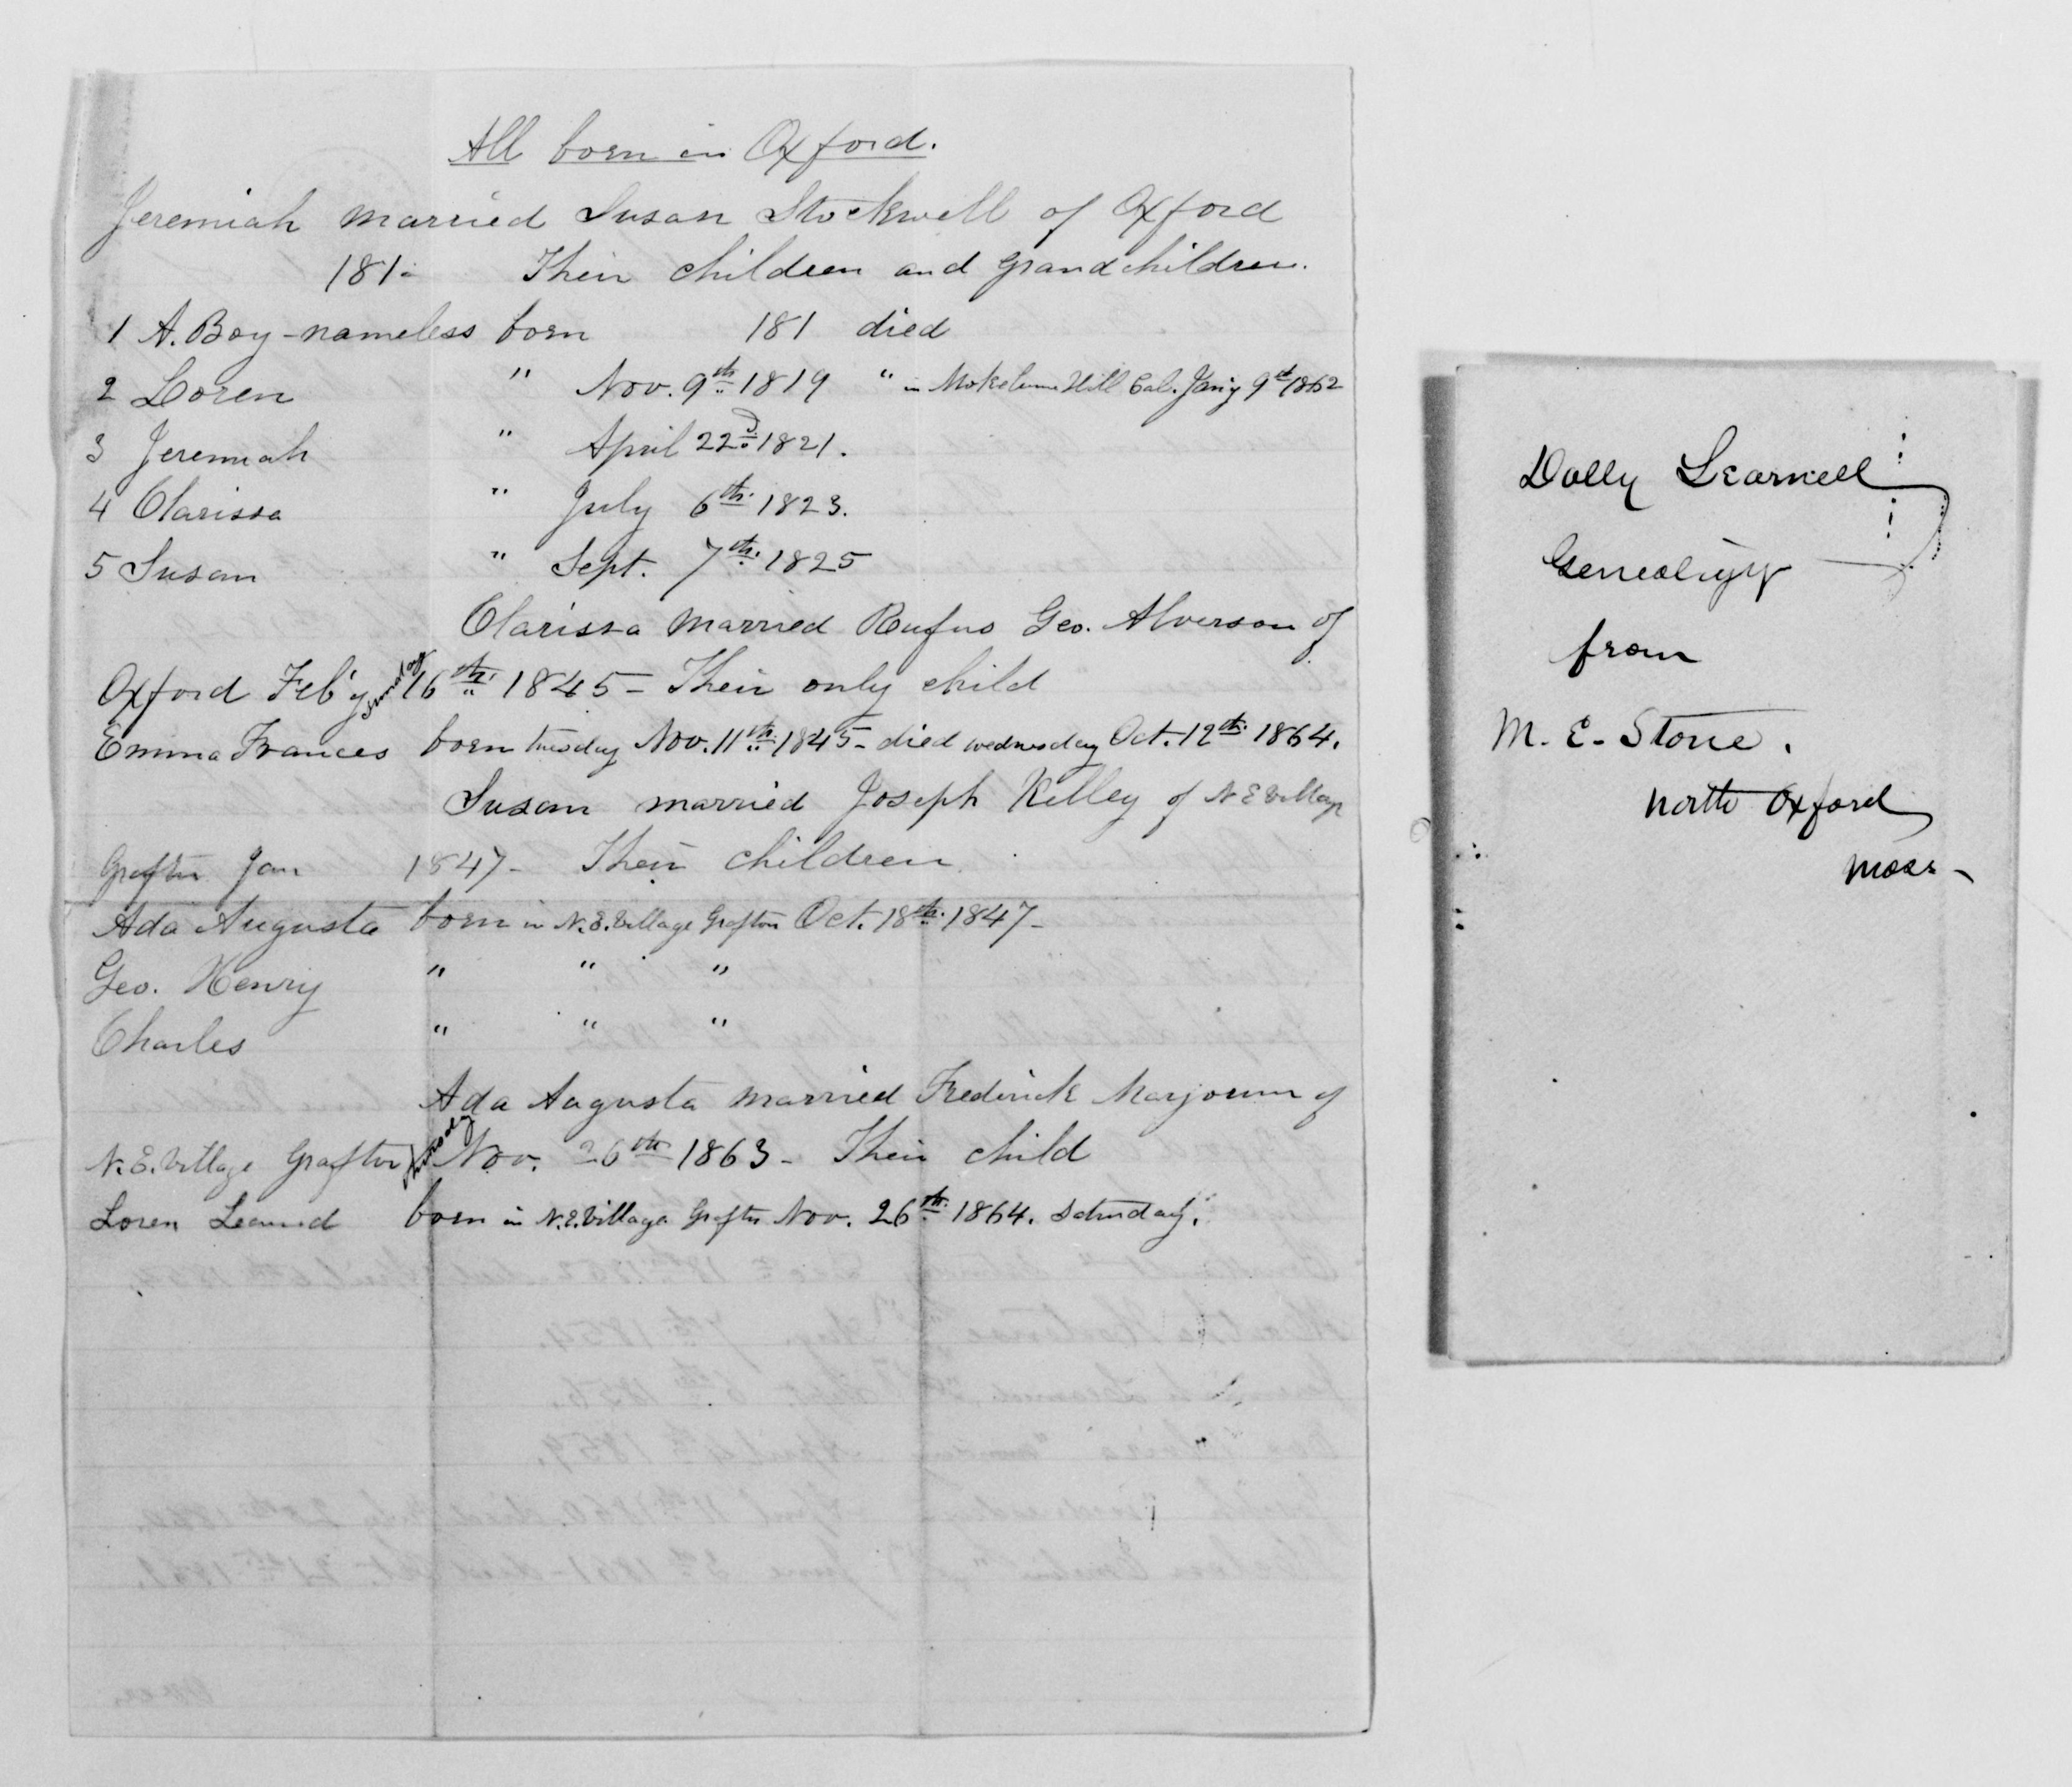 All born in Oxford.
Jeremiah married Susan Stockwell of Oxford
181- Their children and grandchildren.
1 A. Boy - nameless born 181 died
2 Loren " Nov. 9th 1819 " in Mokelumn Hill Cal. Jan'y 9th 1862
3 Jeremiah " April 22d 1821.
4 Clarissa " July 6th 1823.
5 Susan " Sept. 7th 1825
Clarissa married Rufus Geo. Alverson of
Oxford Feb'y sunday 16th 1845 - Their only child
Emma Frances born tuesday Nov. 11th 1845 - died wednesday Oct. 12th 1864.
Susan married Joseph Kelley of N E Village
Grafton Jan 1847 - Their children
Ada Augusta born in N. E. Village Grafton Oct. 18th 1847 -
Geo. Henry " " "
Charles " " "
Ada Augusta married Frederick Marjoum of
N. E. Village Grafton Nov. 26th 1863 - Their child
Loren Learned born in N. E. Village Grafton Nov. 26th 1864. Saturday.
Dolly Learnell
Genealogy
from
M. E. Stone.
North Oxford
Mass -